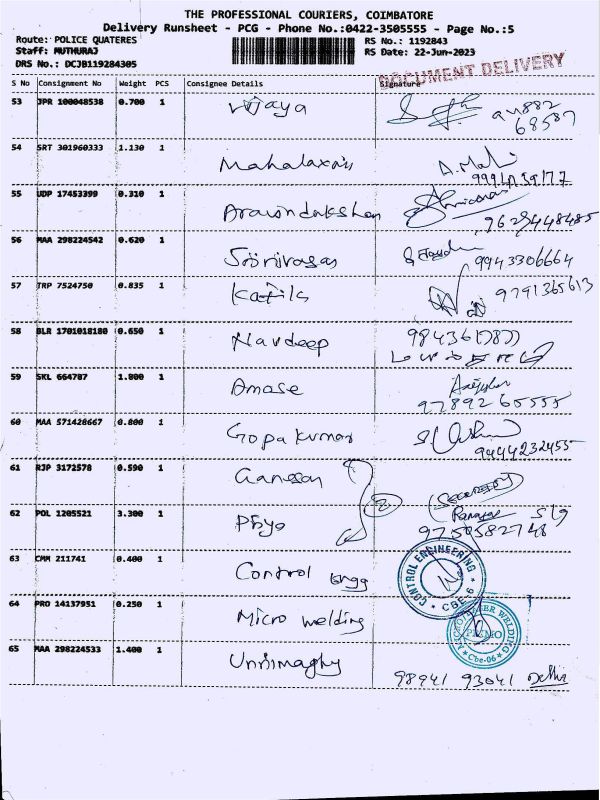 THE PROFESSIONAL COURIERS, COIMBATORE
Delivery Runsheet - PCG - Phone No.:0422-3505555 - Page No.:5
Route: POLICE QUATERES RS No.: 1192843
Staff: MUTHURAJ RS Date: 22-Jun-2023
DRS No.: DCJB119284305 DOCUMENT DELIVERY
S No Consignment No Weight PCS Consignee Details Signature
53 JPR 100048538 0.700 1 Vijaya
68587
54 SRT 301960333 1.130 1 Mahalaxmi A.Mal
55 UDP 17453399 0.310 1 Aravindakshan
9629448485
56 MAA 298224542 0.620 1 Srinivasan
9943306664
57 TRP 7524750 0.835 1 Kapila 9791365613
58 BLR 1701018180 0.650 1 Navdeep
59 SKL 664787 1.800 1 Amase
9789265555
60 MAA 571428667 0.800 1 Gopakumar
9444232455
61 RJP 3172578 0.590 1 Ganesan
(Security)
62 POL 1205521 3.300 1 Priya 2 S/g
9750582748
63 CMM 211741 0.400 1 Control Engg CONTROL ENGINEERING * CBE-6 *
64 PRO 14137951 0.250 1 Micro welding MICRO LASER WELDING PRIMO * Cbe-06 *
65 MAA 298224533 1.400 1
98941 93041